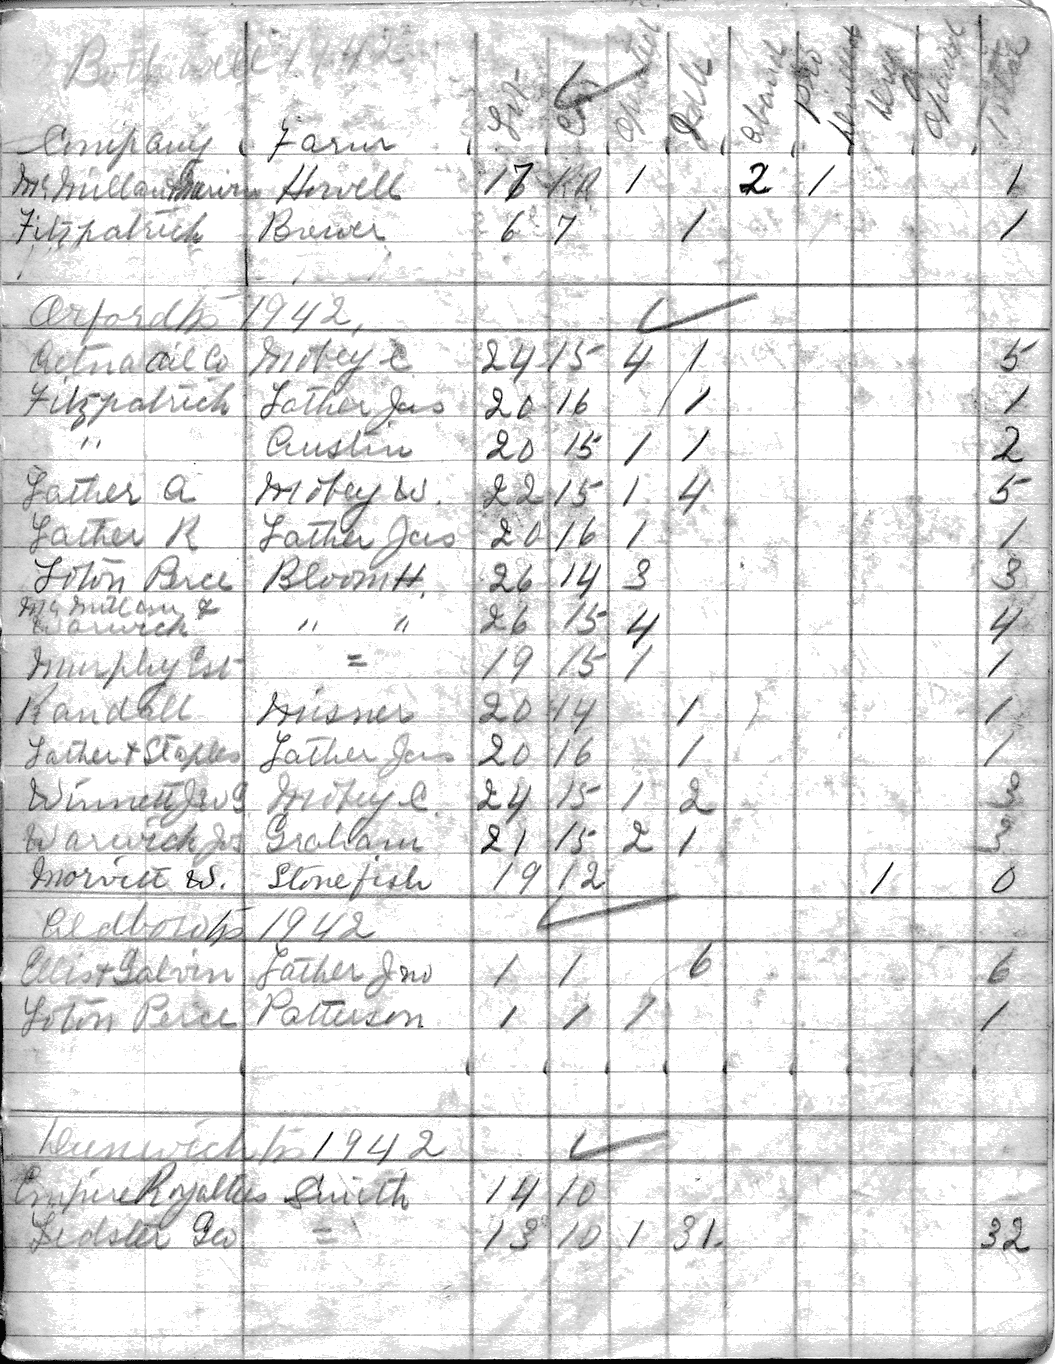 Bothwell 1942
Company Farm Lot Con Operated Idle Aband Pro Drilled Dry Total
McMillan & Howell 17 RR 1 2 1 1
Fitzpatrick Brewer 6 7 1 1
Orford tp 1942,
Aetna Oil Co Mobey C 24 15 4 1 5
Fitzpatrick Lather Jas 20 16 1 1
" Austin 20 15 1 1 2
Lather A Mobey W. 22 15 1 4 5
Lather R Lather Jas 20 16 1 1
Loton Perce Bloom H. 26 14 3 3
McMillan &
Warwick " " 26 15 4 4
Murphy Est = 19 15 1 1
Randall Misner 20 14 1 1
Lather + Staples Lather Jas 20 16 1 1
Winnett Jno G Mobey C 24 15 1 2 3
Warwick Jos Graham 21 15 2 1 3
Morvitt W. Stonefish 19 12 1 0
Aldboro tp 1942
Ellis + Galvin Lather Jno 1 1 6 6
Loton Perce Patterson 1 1 1 1
Dunwich tp 1942
Empire Royalties Smith 14 10
Lidster Geo = 13 10 1 31. 32